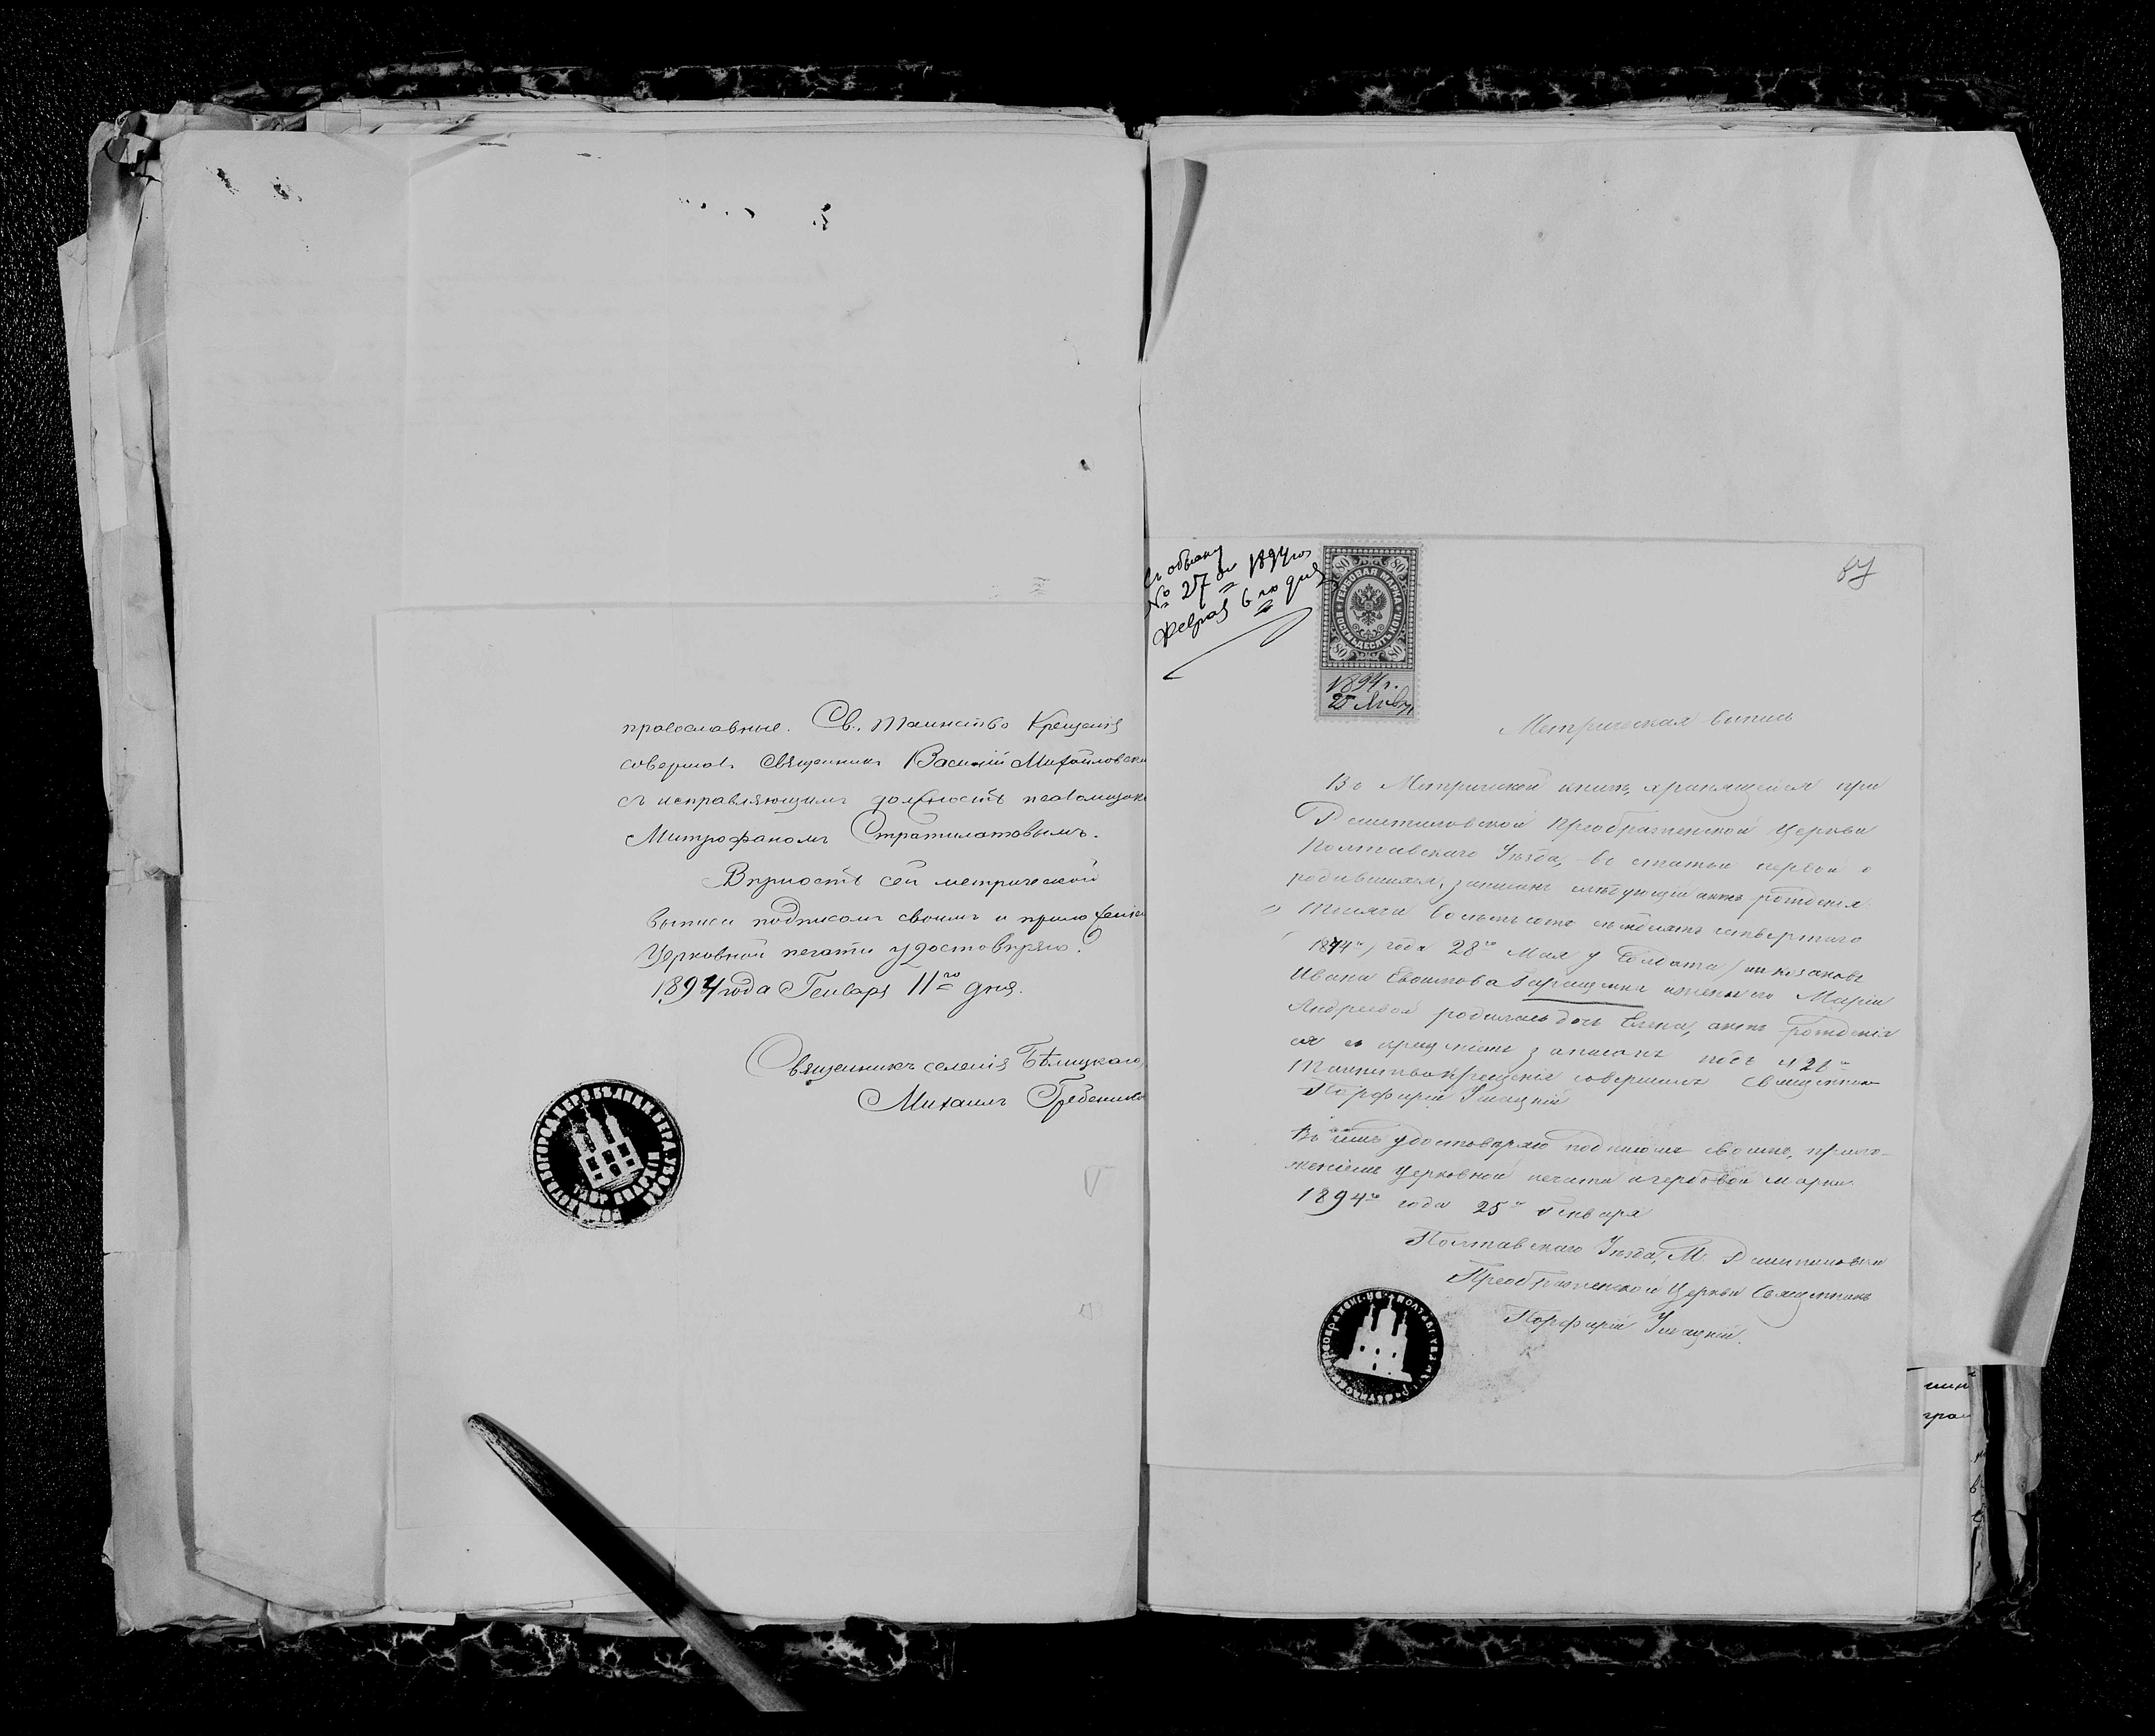 православные. Св. Таинство Крещенія
совершалъ Священникъ Василій Михайловскі
съ исправляющимъ должность псаломщика
Митрофаномъ Стратилатовымъ.
Вѣрность сей метрической
выписи подписомъ своимъ и приложеніем
Церковной печати удостовѣряю.
1894 года Генваря 11го дня.
Священникъ селенія Бѣлицкаго,
Михаилъ Гребенико
Къ обыску
№ 27 1894го
Февраля 6го дня
80 80
ГЕРБОВАЯ МАРКА
ВОСЕМЬДЕСЯТЪ КОП.
80 80
1894 г.
25 Янв
87
Метрическая выпись
Въ Метрической книгѣ, хранящейся при
Решетиловской Преображенской Церкви
Полтавскаго Уѣзда, въ статьи первой о
родившихся, записанъ слѣдующій актъ рожденія
Тысяча восемьсотъ семьдесятъ четвертаго
1874го) года 28го Мая у
Ивана и жены его Маріи
Андреевой родилась дочь Елена, актъ рожденія
ея и крещенія записанъ подъ № 21м
Таинство крещенія совершилъ Священникъ
Порфирій
удостовѣряю подписомъ своимъ, прило-
женіемъ церковной печати и гербовой марки.
1894го года 25го Января
Полтавскаго Уѣзда, М. Решетиловки
Преображенской Церкви Священникъ
Порфирій